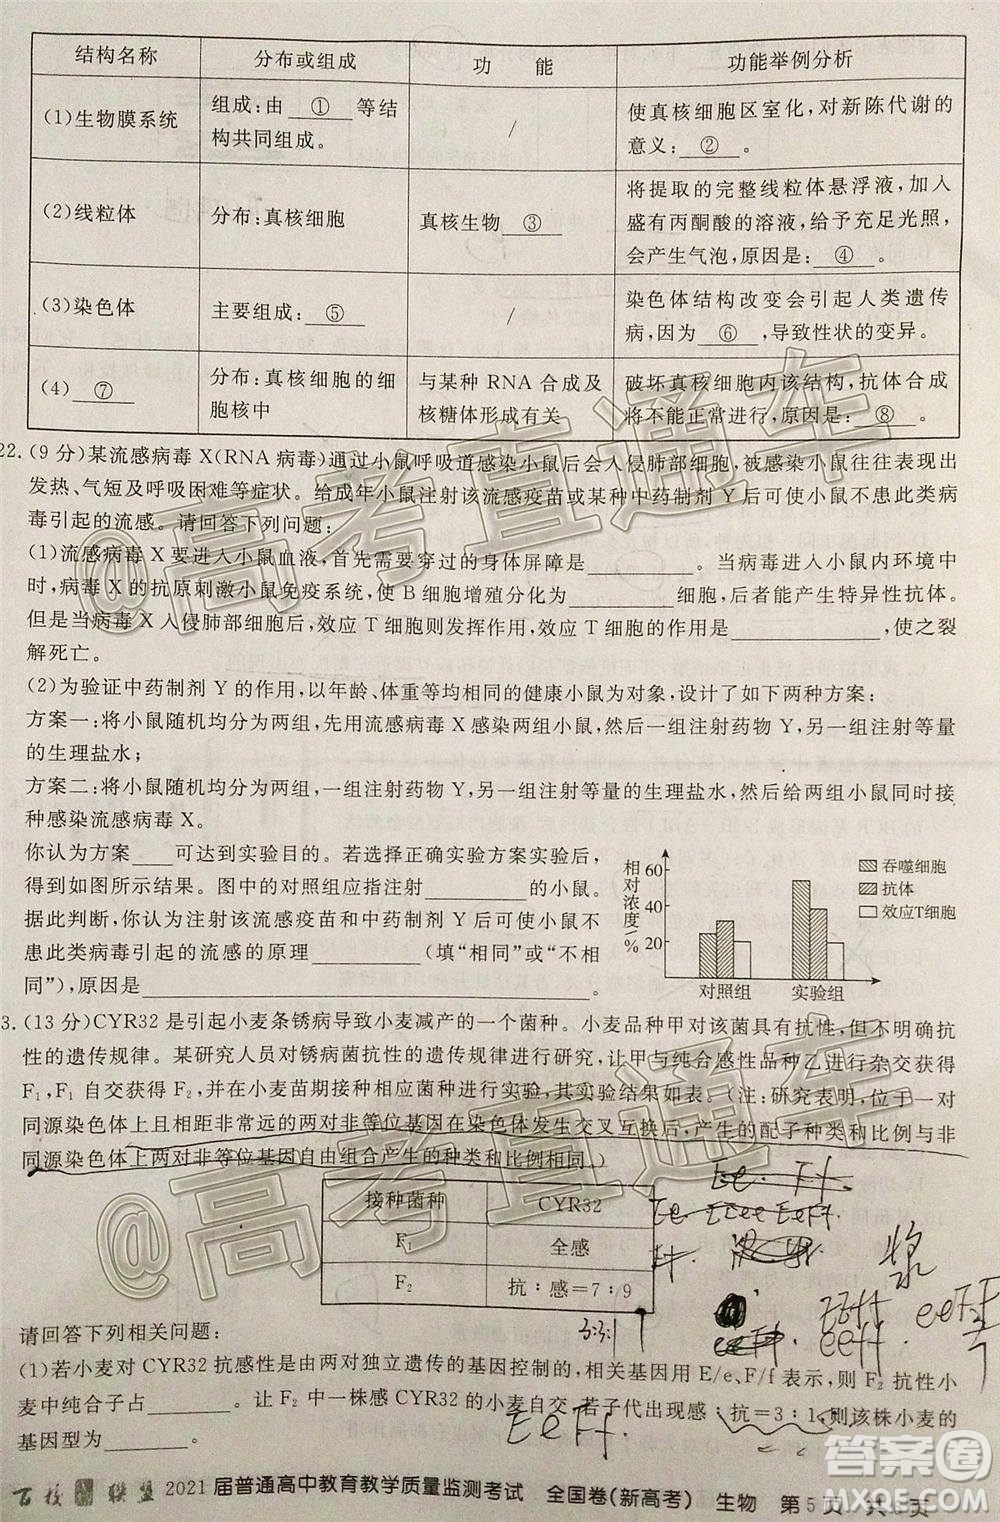 结构名称 分布或组成 功 能 功能举例分析
(1)生物膜系统 组成:由 ① 等结构共同组成。 / 使真核细胞区室化,对新陈代谢的意义: ② 。
(2)线粒体 分布:真核细胞 真核生物 ③ 将提取的完整线粒体悬浮液,加入盛有丙酮酸的溶液,给予充足光照,会产生气泡,原因是: ④ 。
(3)染色体 主要组成: ⑤ / 染色体结构改变会引起人类遗传病,因为 ⑥ ,导致性状的变异。
(4) ⑦ 分布:真核细胞的细胞核中 与某种 RNA 合成及核糖体形成有关 破坏真核细胞内该结构,抗体合成将不能正常进行,原因是: ⑧ 。
22.(9 分)某流感病毒 X(RNA 病毒)通过小鼠呼吸道感染小鼠后会入侵肺部细胞,被感染小鼠往往表现出
发热、气短及呼吸困难等症状。给成年小鼠注射该流感疫苗或某种中药制剂 Y 后可使小鼠不患此类病
毒引起的流感。请回答下列问题:
(1)流感病毒 X 要进入小鼠血液,首先需要穿过的身体屏障是________。当病毒进入小鼠内环境中
时,病毒 X 的抗原刺激小鼠免疫系统,使 B 细胞增殖分化为________,后者能产生特异性抗体。
但是当病毒 X 入侵肺部细胞后,效应 T 细胞则发挥作用,效应 T 细胞的作用是________,使之裂
解死亡。
(2)为验证中药制剂 Y 的作用,以年龄、体重等均相同的健康小鼠为对象,设计了如下两种方案:
方案一:将小鼠随机均分为两组,先用流感病毒 X 感染两组小鼠,然后一组注射药物 Y,另一组注射等量
的生理盐水;
方案二:将小鼠随机均分为两组,一组注射药物 Y,另一组注射等量的生理盐水,然后给两组小鼠同时接
种感染流感病毒 X。
你认为方案____可达到实验目的。若选择正确实验方案实验后,
得到如图所示结果。图中的对照组应指注射________的小鼠。
据此判断,你认为注射该流感疫苗和中药制剂 Y 后可使小鼠不
患此类病毒引起的流感的原理________(填“相同”或“不相
同”),原因是________________。
相对浓度/%
60
40
20
对照组 实验组
吞噬细胞
抗体
效应T细胞
3.(13 分)CYR32 是引起小麦条锈病导致小麦减产的一个菌种。小麦品种甲对该菌具有抗性,但不明确抗
性的遗传规律。某研究人员对锈病菌抗性的遗传规律进行研究,让甲与纯合感性品种乙进行杂交获得
F₁,F₁ 自交获得 F₂,并在小麦苗期接种相应菌种进行实验,其实验结果如表。(注:研究表明,位于一对
同源染色体上且相距非常远的两对非等位基因在染色体发生交叉互换后,产生的配子种类和比例与非
同源染色体上两对非等位基因自由组合产生的种类和比例相同。)
接种菌种 CYR32
F₁ 全感
F₂ 抗:感=7:9
请回答下列相关问题:
(1)若小麦对 CYR32 抗感性是由两对独立遗传的基因控制的,相关基因用 E/e、F/f 表示,则 F₂ 抗性小
麦中纯合子占________。让 F₂ 中一株感 CYR32 的小麦自交,若子代出现感:抗=3:1,则该株小麦的
基因型为________。
EeFF
百校联盟 2021 届普通高中教育教学质量监测考试 全国卷(新高考) 生物 第 5 页 共 页
@高考直通车
@高考直通车
答案圈
MXQE.COM